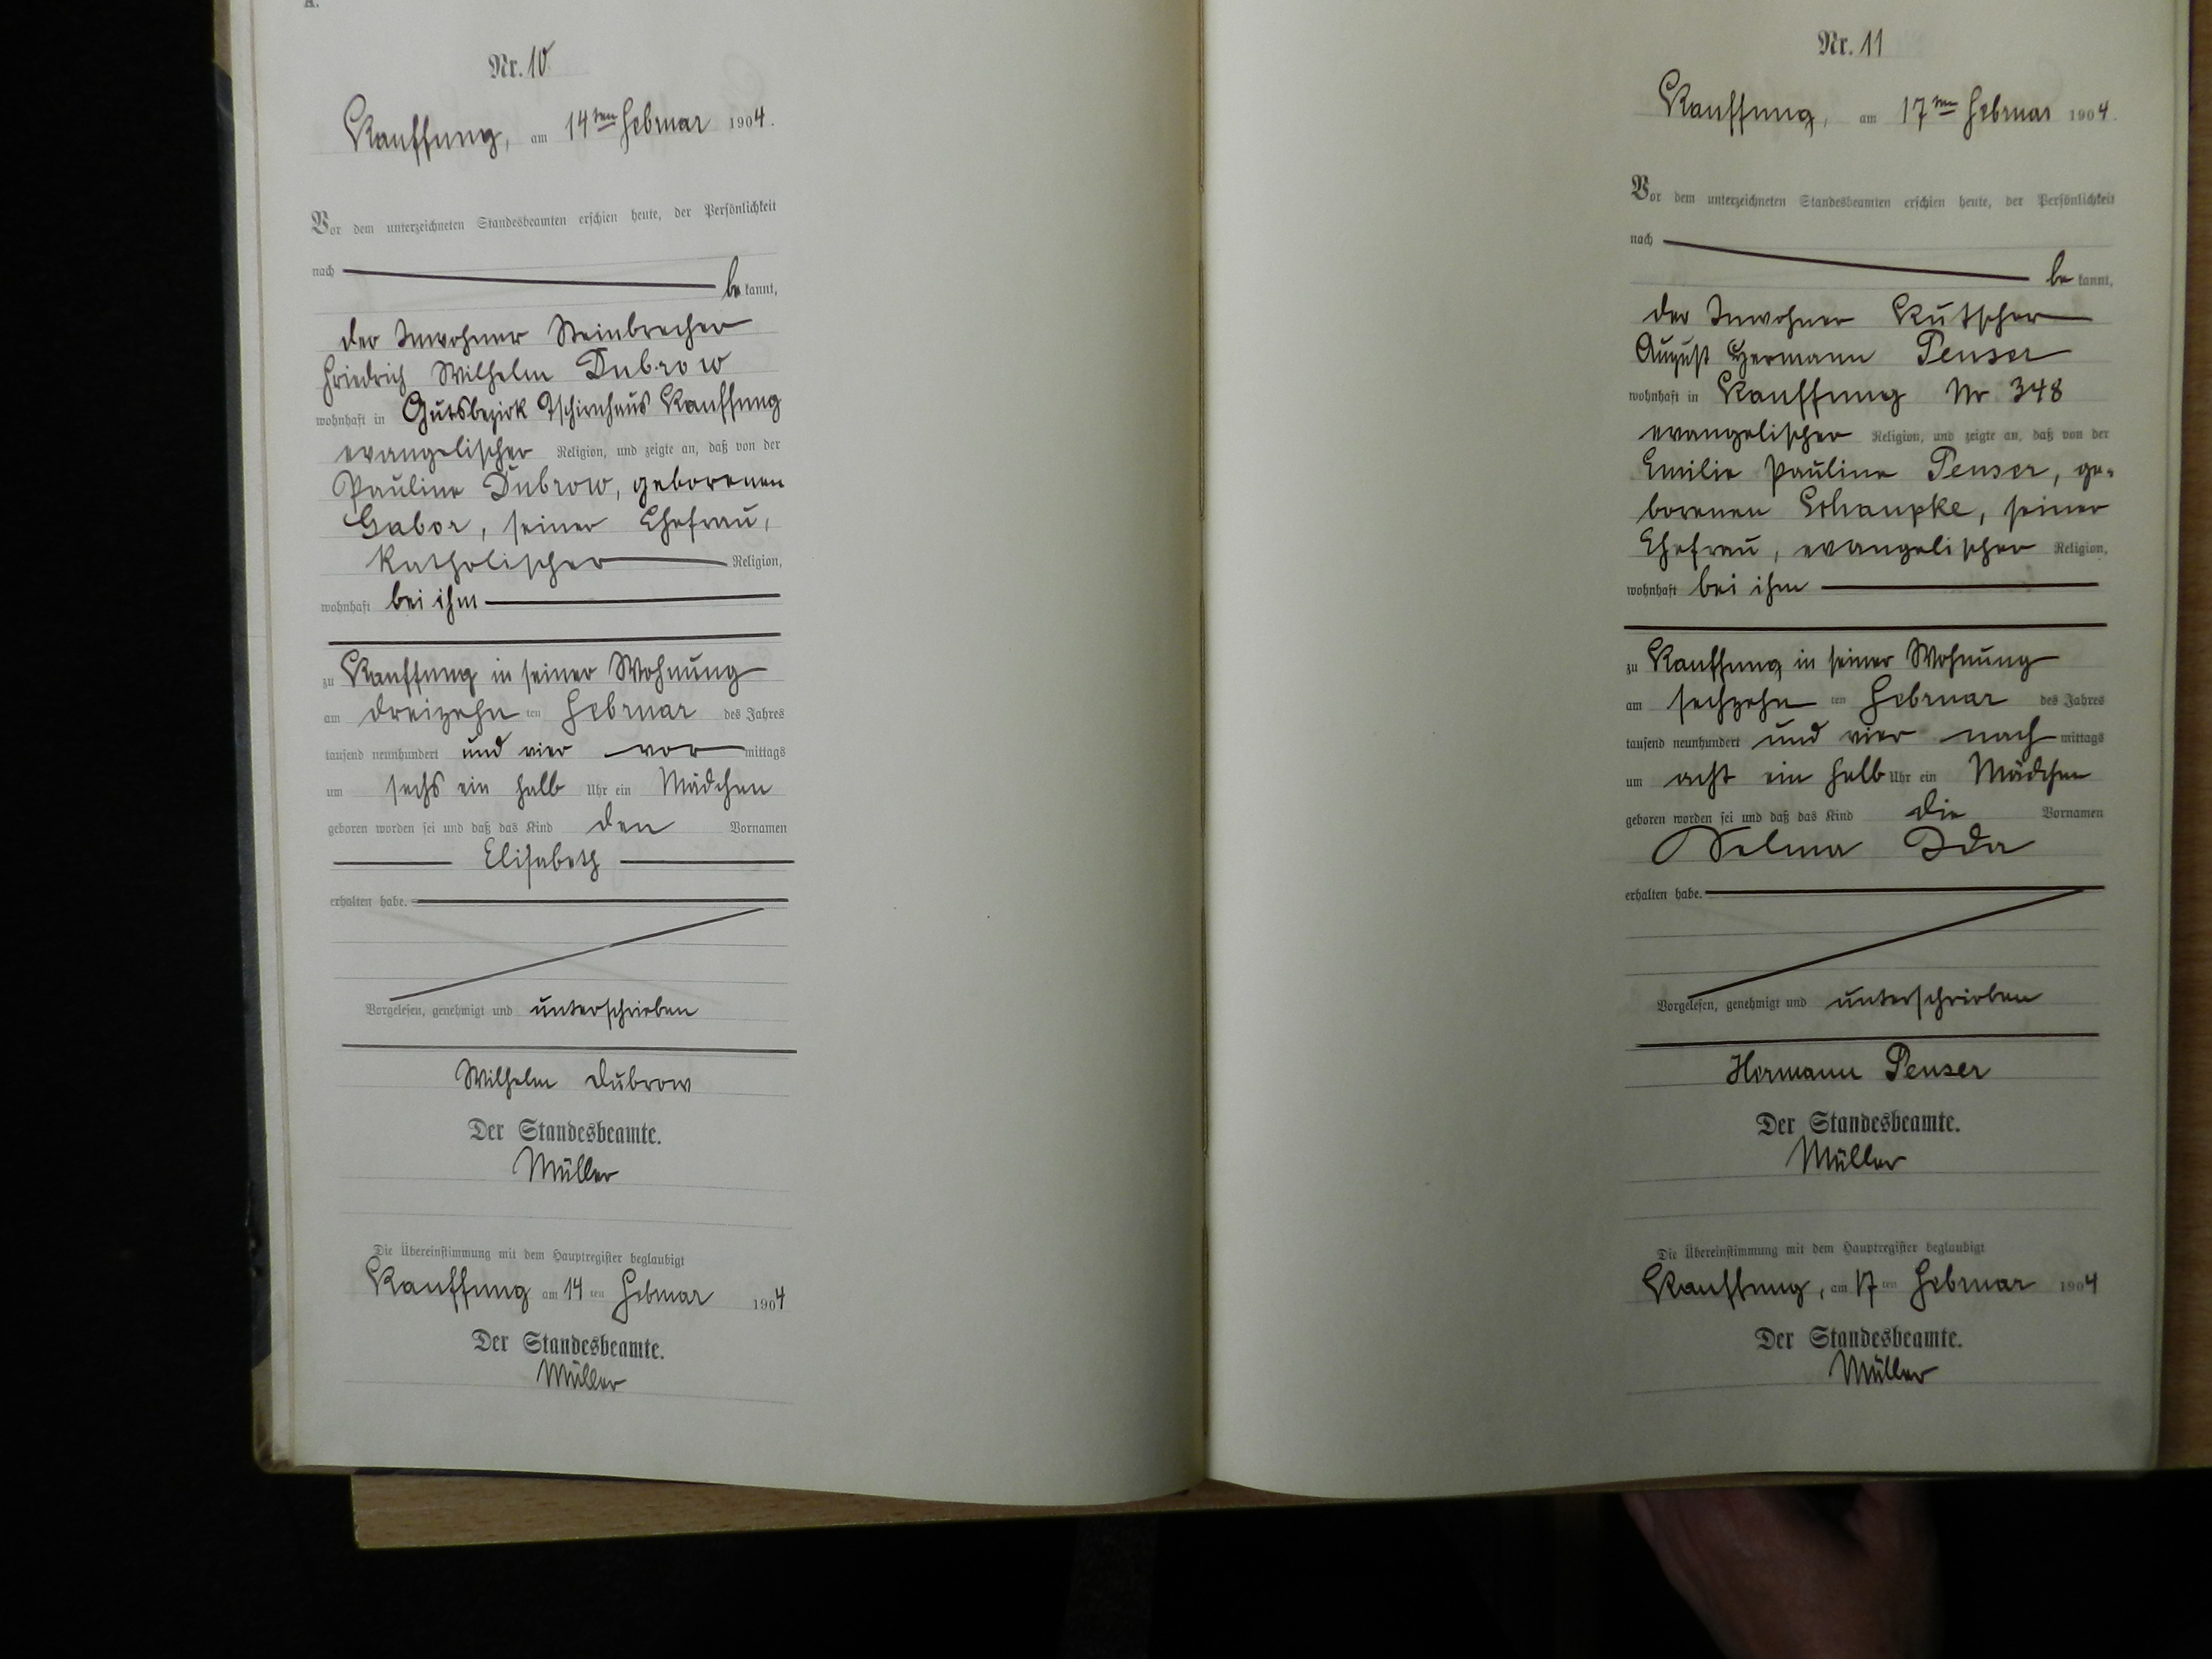 A.
Nr. 10
Kauffung, am 14ten Februar 1904.
Vor dem unterzeichneten Standesbeamten erschien heute, der Persönlichkeit
nach
be kannt,
der Inwohner Steinbrecher
Friedrich Wilhelm Dubrow
wohnhaft in Gutsbezirk Tschirnhaus Kauffung
evangelischer Religion, und zeigte an, daß von der
Pauline Dubrow, geborenen
Gabor, seiner Ehefrau,
katholischer Religion,
wohnhaft bei ihm
zu Kauffung in seiner Wohnung
am dreizehn ten Februar des Jahres
tausend neunhundert und vier vor mittags
um sechs ein halb Uhr ein Mädchen
geboren worden sei und daß das Kind den Vornamen
Elisabeth
erhalten habe.
Vorgelesen, genehmigt und unterschrieben
Wilhelm Dubrow
Der Standesbeamte.
Müller
Die Übereinstimmung mit dem Hauptregister beglaubigt
Kauffung am 14 ten Februar 1904
Der Standesbeamte.
Müller
Nr. 11
Kauffung, am 17ten Februar 1904.
Vor dem unterzeichneten Standesbeamten erschien heute, der Persönlichkeit
nach
be kannt,
der Inwohner Kutscher
August Hermann Penser
wohnhaft in Kauffung Nr 348
evangelischer Religion, und zeigte an, daß von der
Emilie Pauline Penser, ge-
borenen Schaupke, seiner
Ehefrau, evangelischer Religion,
wohnhaft bei ihm
zu Kauffung in seiner Wohnung
am sechzehn ten Februar des Jahres
tausend neunhundert und vier nach mittags
um acht ein halb Uhr ein Mädchen
geboren worden sei und daß das Kind die Vornamen
Selma Ida
erhalten habe.
Vorgelesen, genehmigt und unterschrieben
Hermann Penser
Der Standesbeamte.
Müller
Die Übereinstimmung mit dem Hauptregister beglaubigt
Kauffung, am 17 ten Februar 1904
Der Standesbeamte.
Müller